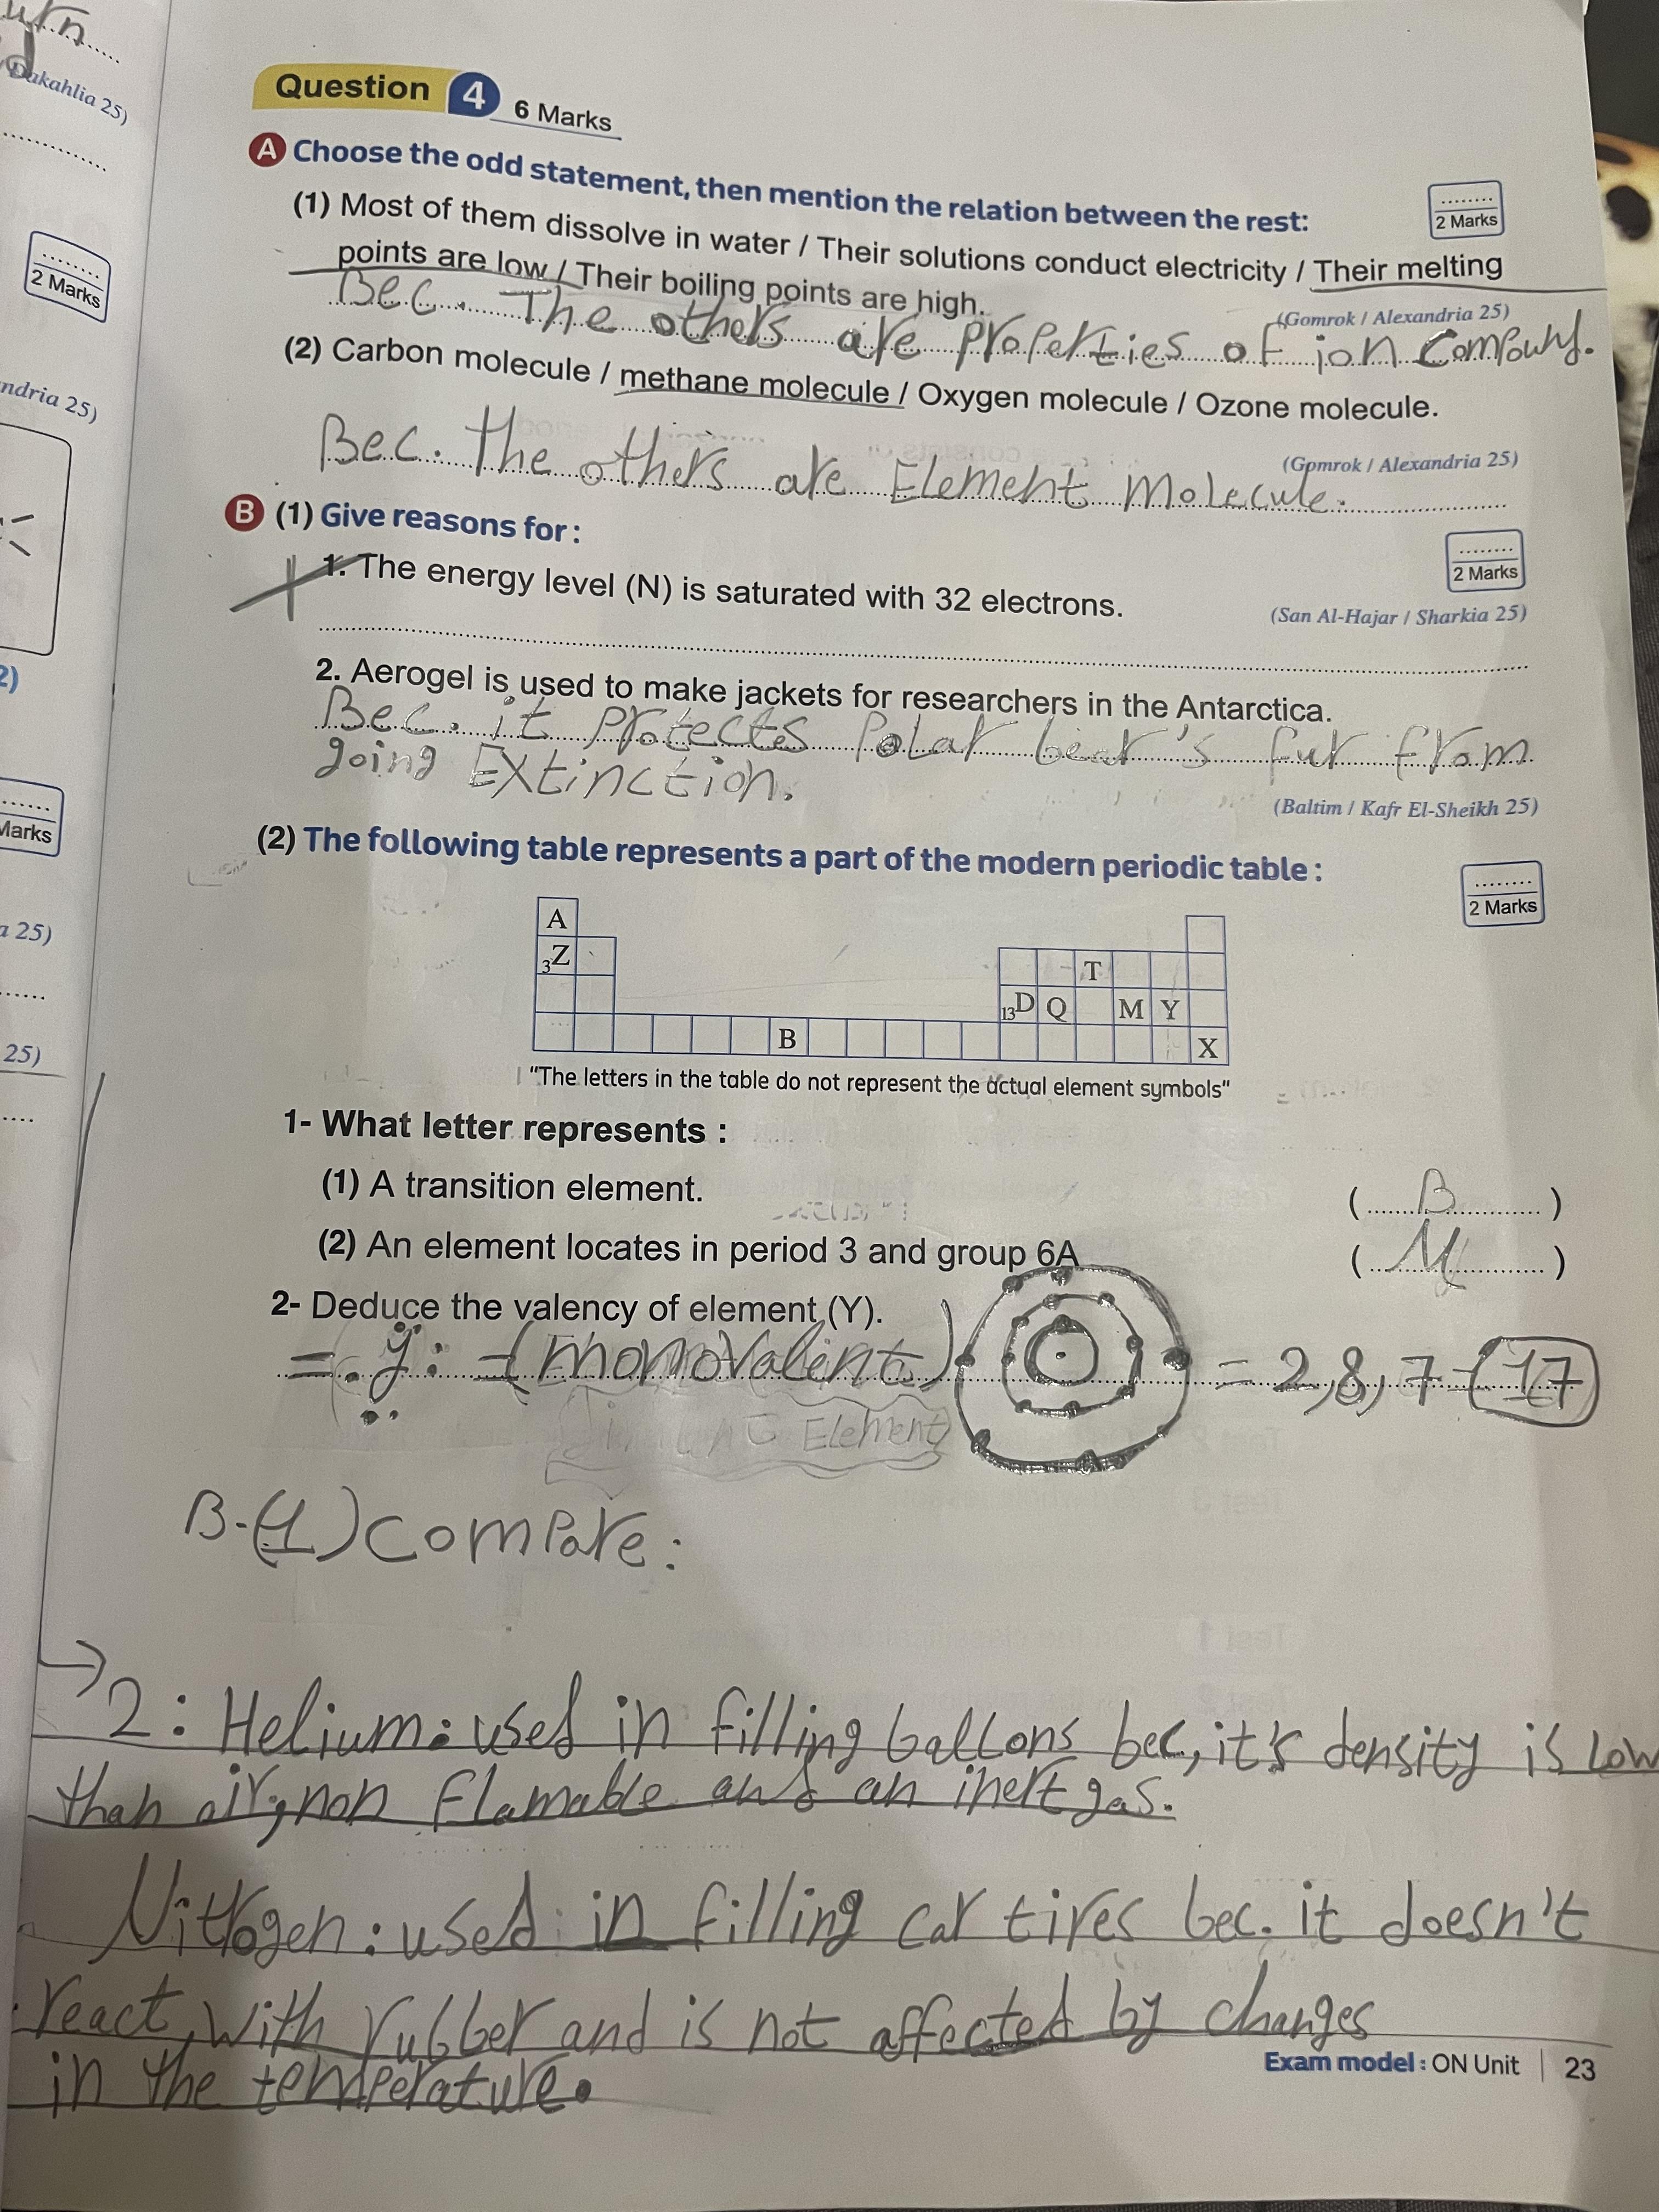 urn
Dakahlia 25)
2 Marks
ndria 25)
2)
Marks
a 25)
25)
Question 4 6 Marks
A Choose the odd statement, then mention the relation between the rest:
2 Marks
(1) Most of them dissolve in water / Their solutions conduct electricity / Their melting
points are low / Their boiling points are high.
(Gomrok / Alexandria 25)
Bec. The others are properties of ion compound.
(2) Carbon molecule / methane molecule / Oxygen molecule / Ozone molecule.
(Gomrok / Alexandria 25)
Bec. the others are Element Molecule.
B (1) Give reasons for:
2 Marks
1. The energy level (N) is saturated with 32 electrons.
(San Al-Hajar / Sharkia 25)
2. Aerogel is used to make jackets for researchers in the Antarctica.
Bec. it protects Polar bear's fur from
going EXtinction.
(Baltim / Kafr El-Sheikh 25)
(2) The following table represents a part of the modern periodic table:
2 Marks
A
3Z
T
13D Q M Y
B
X
"The letters in the table do not represent the actual element symbols"
1- What letter represents :
(1) A transition element. (B)
(2) An element locates in period 3 and group 6A (M)
2- Deduce the valency of element (Y).
= y: - (monovalent) = 2,8,7 - 17
Element
B-(1) compare:
2: Helium: used in filling ballons bec, it's density is low
than air, non flamable and an inert gas.
Nitrogen: used in filling car tires bec. it doesn't
react, with rubber and is not affected by changes
in the temperature.
Exam model : ON Unit | 23